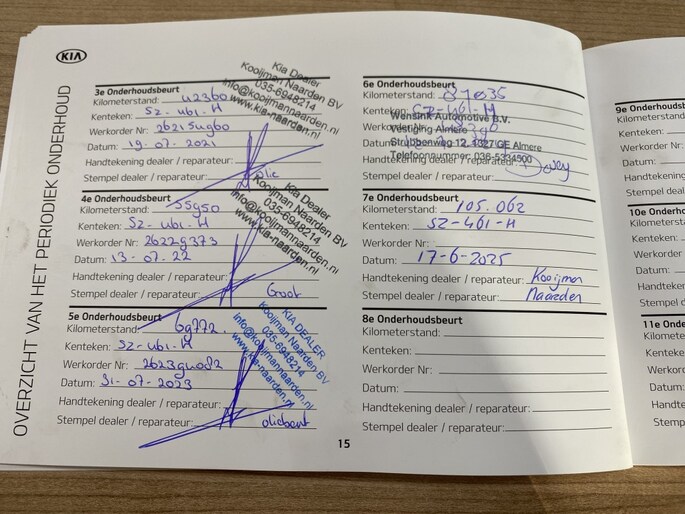 KIA
OVERZICHT VAN HET PERIODIEK ONDERHOUD
3e Onderhoudsbeurt
Kilometerstand: 42360
Kenteken: SZ-461-H
Werkorder Nr: 26215490
Datum: 19-07-2021
Handtekening dealer / reparateur:
Stempel dealer / reparateur:
Kia Dealer
Kooijman Naarden BV
035-6948214
info@kooijmannaarden.nl
www.kia-naarden.nl
4e Onderhoudsbeurt
Kilometerstand: 55950
Kenteken: SZ-461-H
Werkorder Nr: 26229373
Datum: 13-07-22
Handtekening dealer / reparateur:
Stempel dealer / reparateur: Groot
Kia Dealer
Kooijman Naarden BV
035-6948214
info@kooijmannaarden.nl
www.kia-naarden.nl
5e Onderhoudsbeurt
Kilometerstand: 69772.
Kenteken: SZ-461-H
Werkorder Nr:
Datum: 31-07-2023
Handtekening dealer / reparateur:
Stempel dealer / reparateur:
KIA DEALER
Kooijman Naarden BV
035-6948214
info@kooijmannaarden.nl
www.kia-naarden.nl
6e Onderhoudsbeurt
Kilometerstand: 87035
Kenteken: SZ-461-H
Werkorder Nr:
Datum:
Handtekening dealer / reparateur:
Stempel dealer / reparateur:
Wensink Automotive B.V.
Vestiging Almere
Strubbenweg 12, 1327 GE Almere
Telefoonnummer: 036-5334500
7e Onderhoudsbeurt
Kilometerstand: 105.062
Kenteken: SZ-461-H
Werkorder Nr:
Datum: 17-6-2025
Handtekening dealer / reparateur: Kooijman
Stempel dealer / reparateur: Naarden
8e Onderhoudsbeurt
Kilometerstand:
Kenteken:
Werkorder Nr:
Datum:
Handtekening dealer / reparateur:
Stempel dealer / reparateur:
15
9e Onderhoudsb
Kilometerstand
Kenteken:
Werkorder N
Datum:
Handteken
Stempel d
10e Onde
Kilomete
Kenteke
Werkor
Datum
Handt
Stem
11e O
Kilom
Kent
Wer
Dat
Ha
St